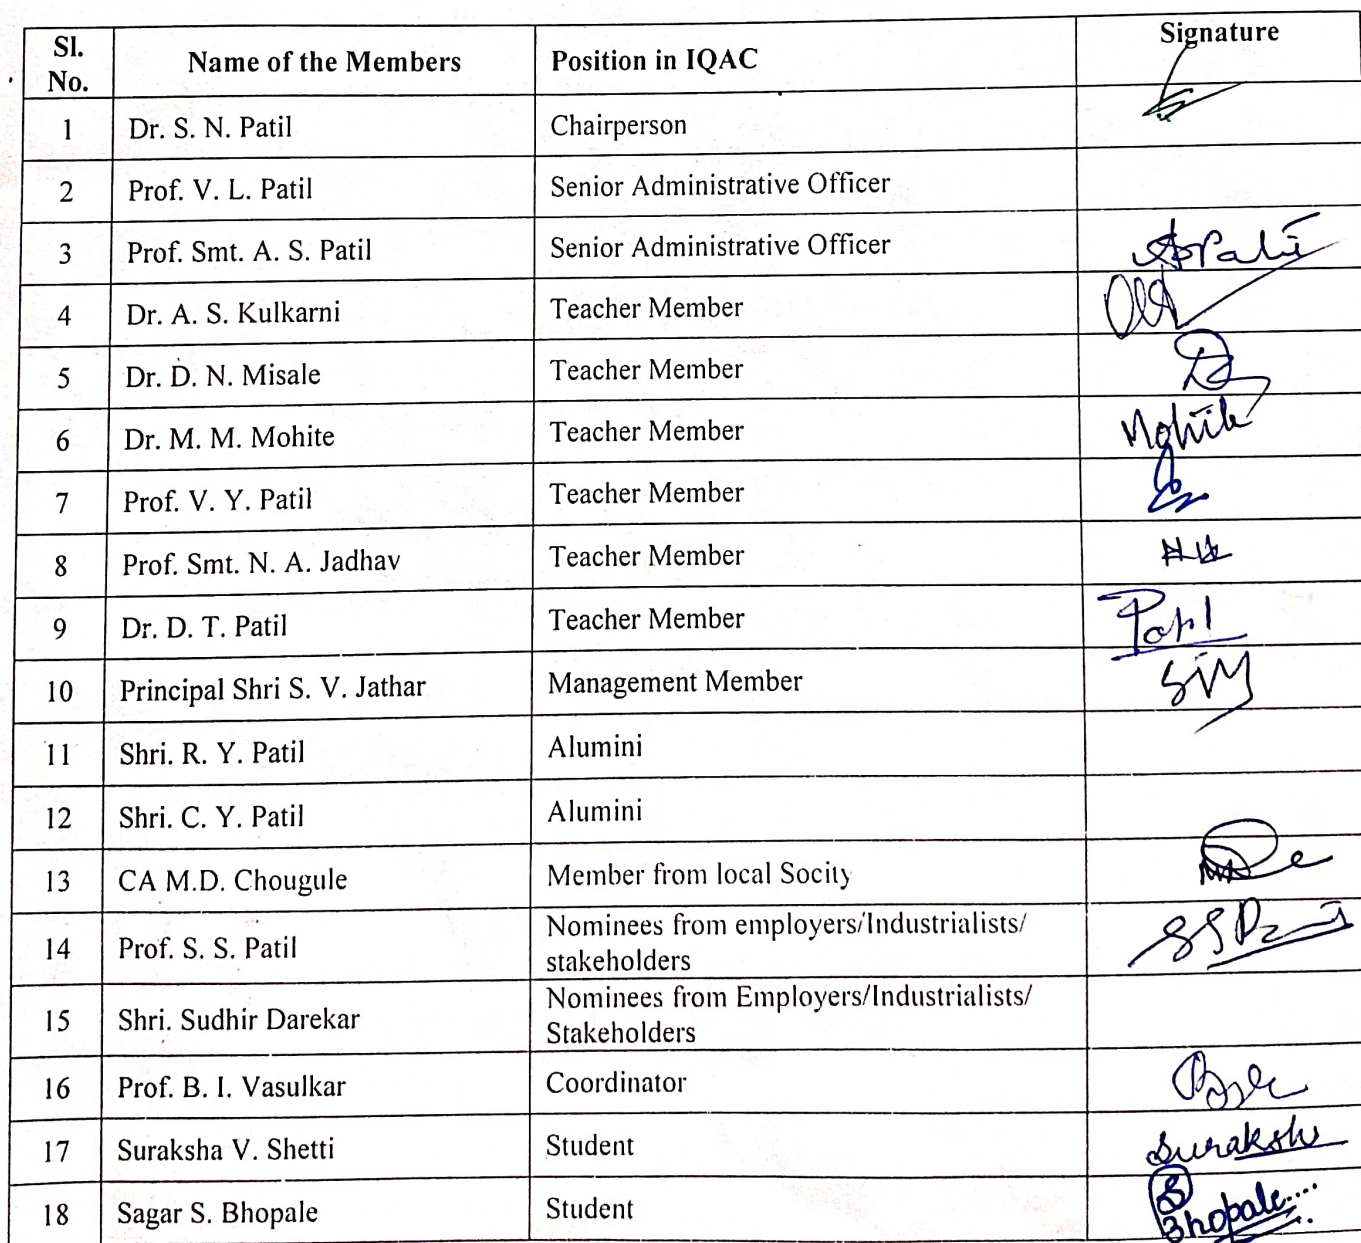 Sl. No. Name of the Members Position in IQAC Signature
1 Dr. S. N. Patil Chairperson
2 Prof. V. L. Patil Senior Administrative Officer
3 Prof. Smt. A. S. Patil Senior Administrative Officer
4 Dr. A. S. Kulkarni Teacher Member
5 Dr. D. N. Misale Teacher Member
6 Dr. M. M. Mohite Teacher Member Mohite
7 Prof. V. Y. Patil Teacher Member
8 Prof. Smt. N. A. Jadhav Teacher Member
9 Dr. D. T. Patil Teacher Member Patil
10 Principal Shri S. V. Jathar Management Member
11 Shri. R. Y. Patil Alumini
12 Shri. C. Y. Patil Alumini
13 CA M.D. Chougule Member from local Socity
14 Prof. S. S. Patil Nominees from employers/Industrialists/
stakeholders
15 Shri. Sudhir Darekar Nominees from Employers/Industrialists/
Stakeholders
16 Prof. B. I. Vasulkar Coordinator
17 Suraksha V. Shetti Student Suraksha
18 Sagar S. Bhopale Student Bhopale